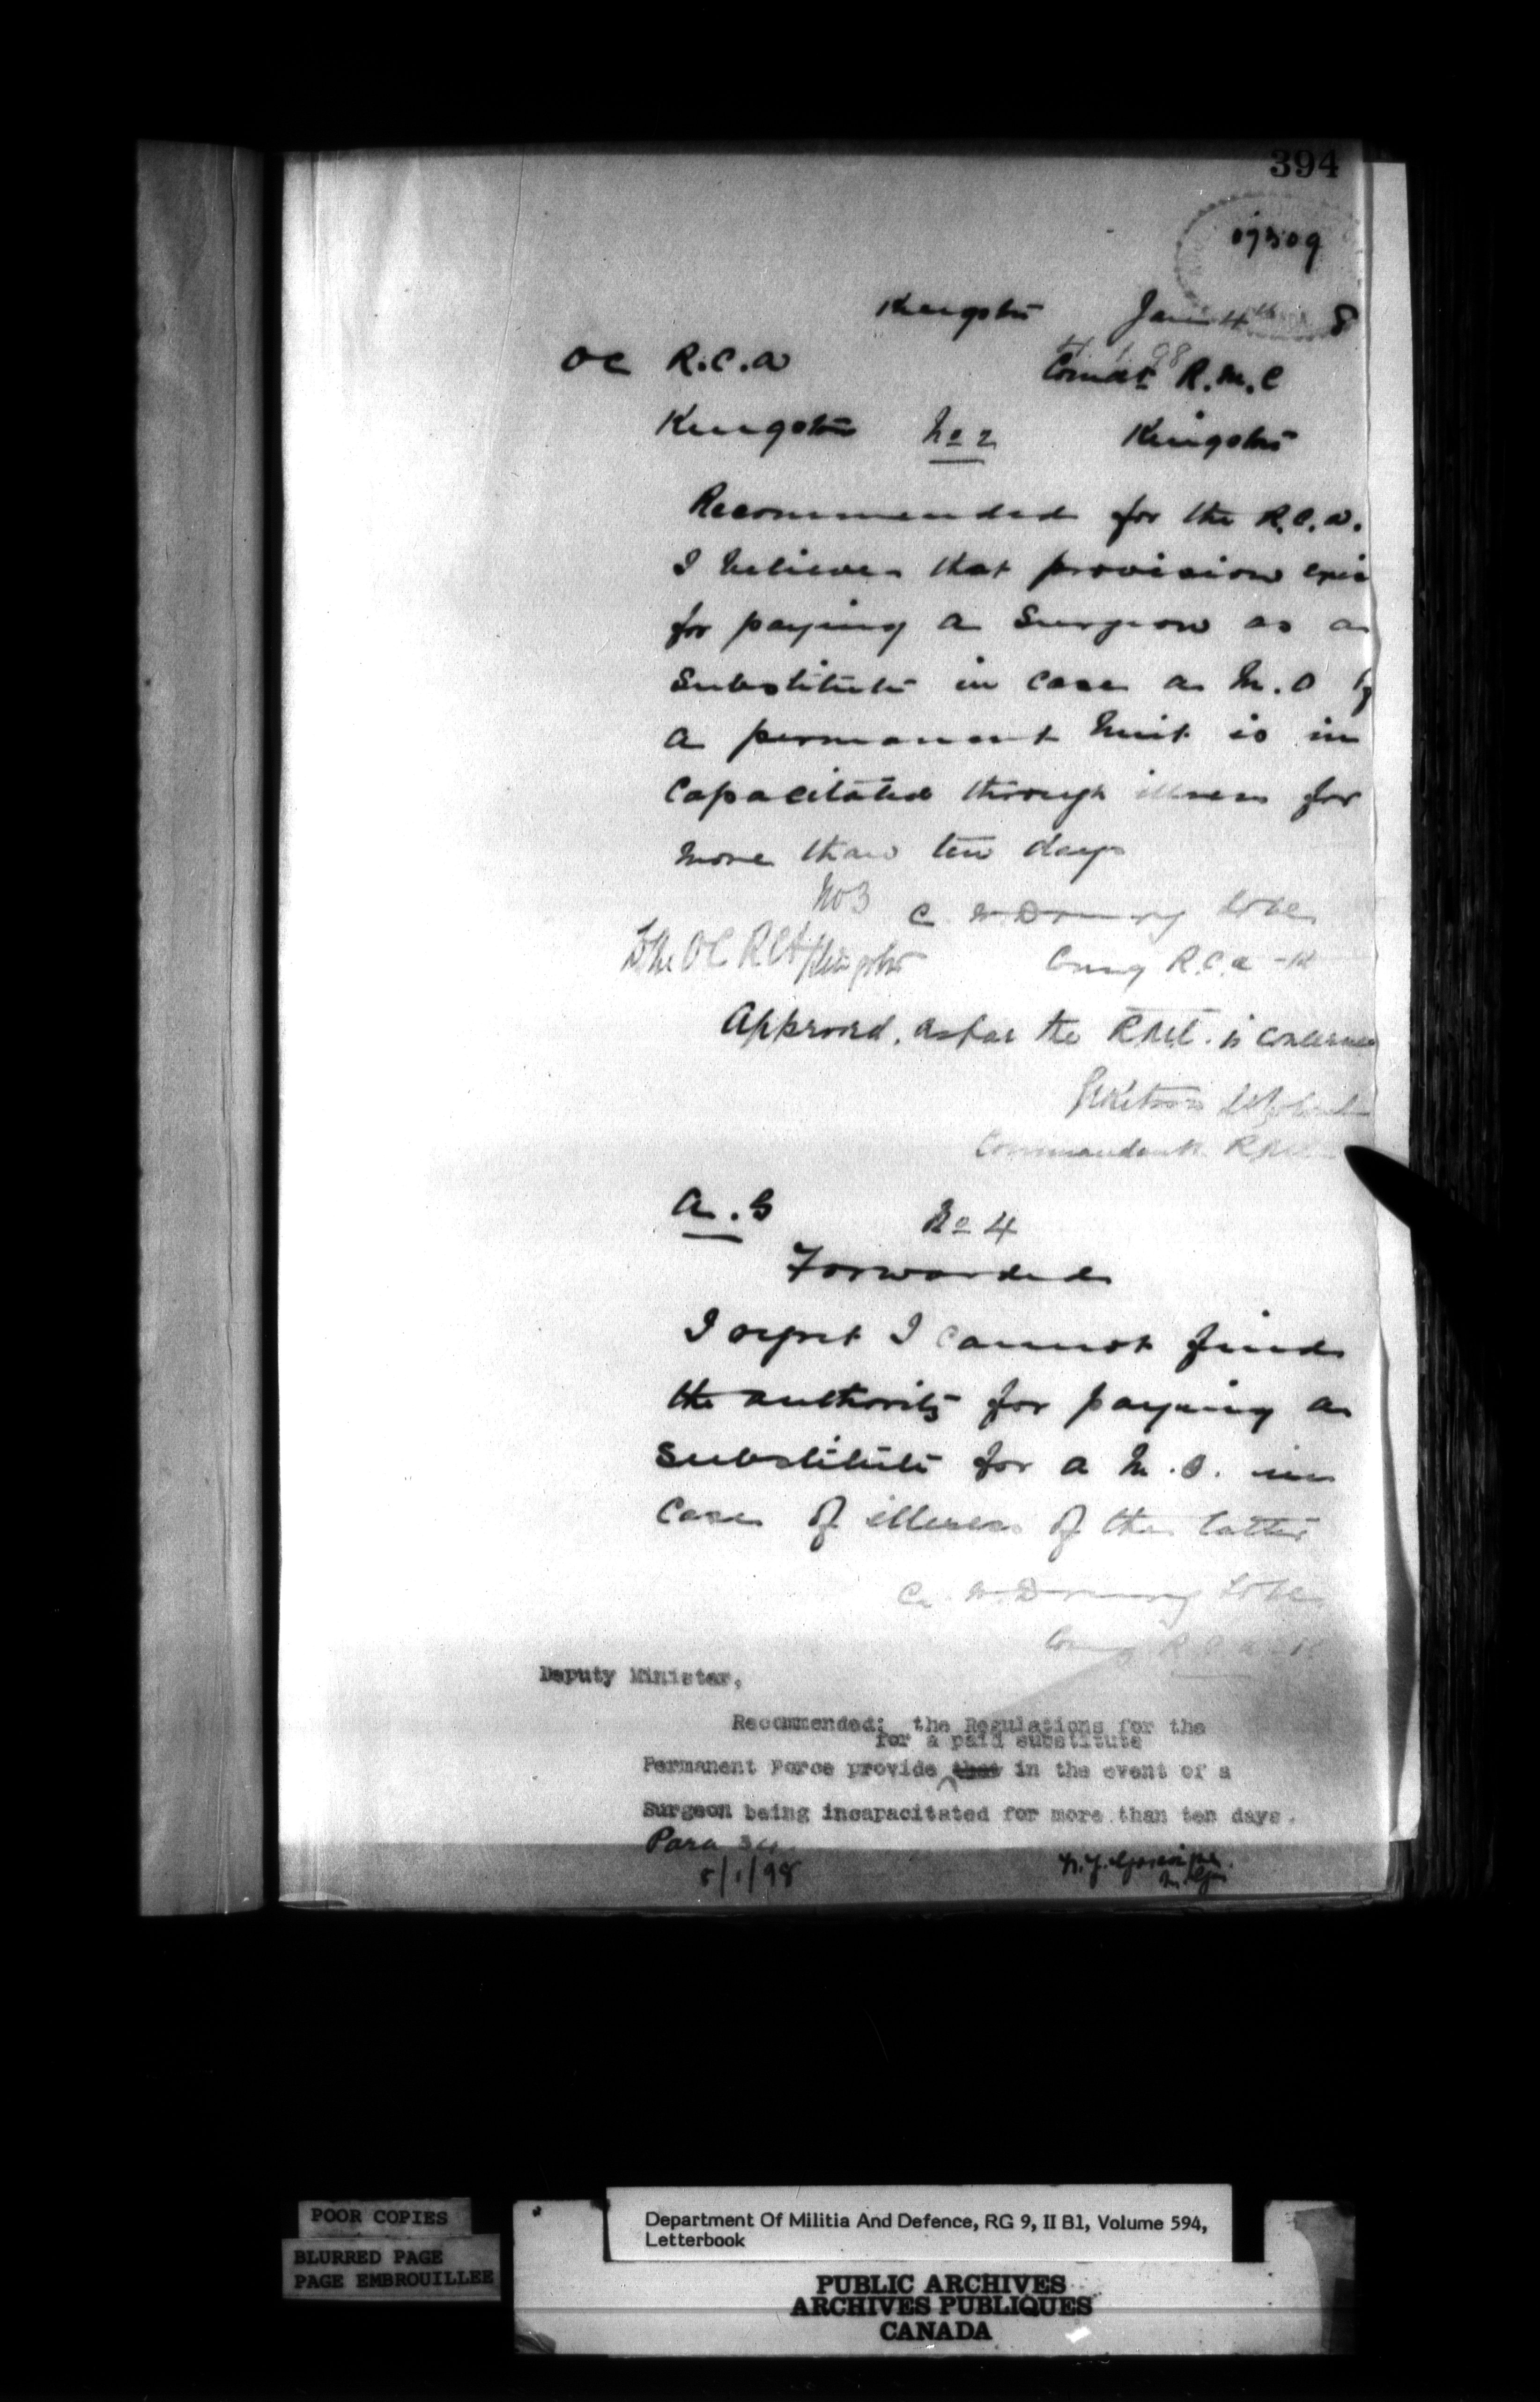 394
07309
Kingston Jan 4th 8
4 1 98
OC R.C.A Comdt R.M.C
Kingston No 2 Kingston
Recommended for the R.C.A.
I believe that provision exis
for paying a Surgeon as a
Substitute in case a M.O of
a permanent Unit is in
capacitated through illness for
more than ten days
No 3 C. W. Drury Lt Col
To the OC RCA Kingston Comg R.C.A - K
Approved, as far the RMC. is concerned
Kitson Lt Colonel
Commandant RMC
A.G No 4
Forwarded
I regret I cannot find
the authority for paying a
substitute for a M.O. in
case of illness of the latter
C. W. Drury Lt Col
Comg R.C.A - K
Deputy Minister,
Recommended; the Regulations for the
for a paid substitute
Permanent Force provide that in the event of a
Surgeon being incapacitated for more than ten days.
Para 34
5/1/98
M. Gen
POOR COPIES
BLURRED PAGE
PAGE EMBROUILLEE
Department Of Militia And Defence, RG 9, II B1, Volume 594,
Letterbook
PUBLIC ARCHIVES
ARCHIVES PUBLIQUES
CANADA